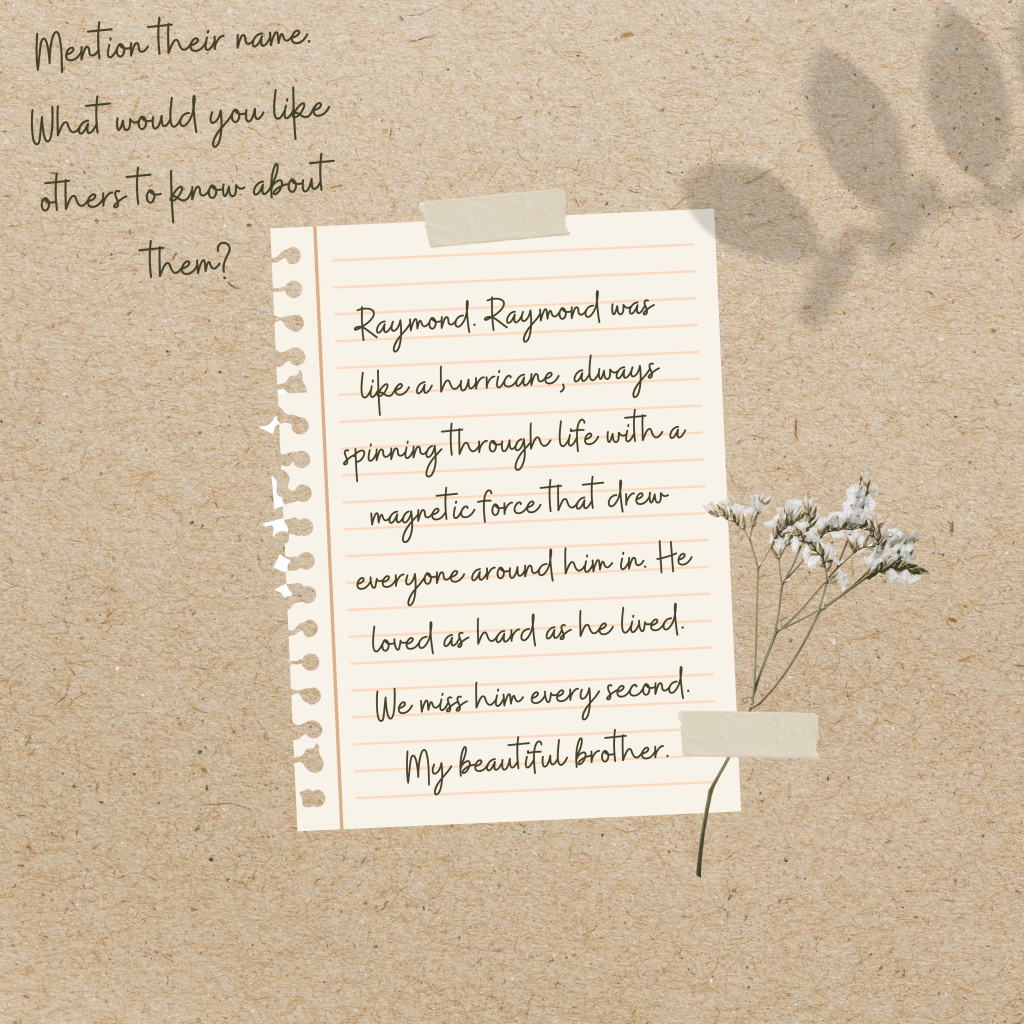 Mention their name.
What would you like
others to know about
them?
Raymond. Raymond was
like a hurricane, always
spinning through life with a
magnetic force that drew
everyone around him in. He
loved as hard as he lived.
We miss him every second.
My beautiful brother.